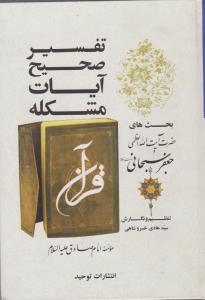 تفسیر
صحیح
آیات
مشکله
بحث های
حضرت آیت الله العظمی
جعفر سبحانی
قرآن
تنظیم و نگارش
سید هادی خسروشاهی
مؤسسه امام صادق علیه السلام
انتشارات توحید